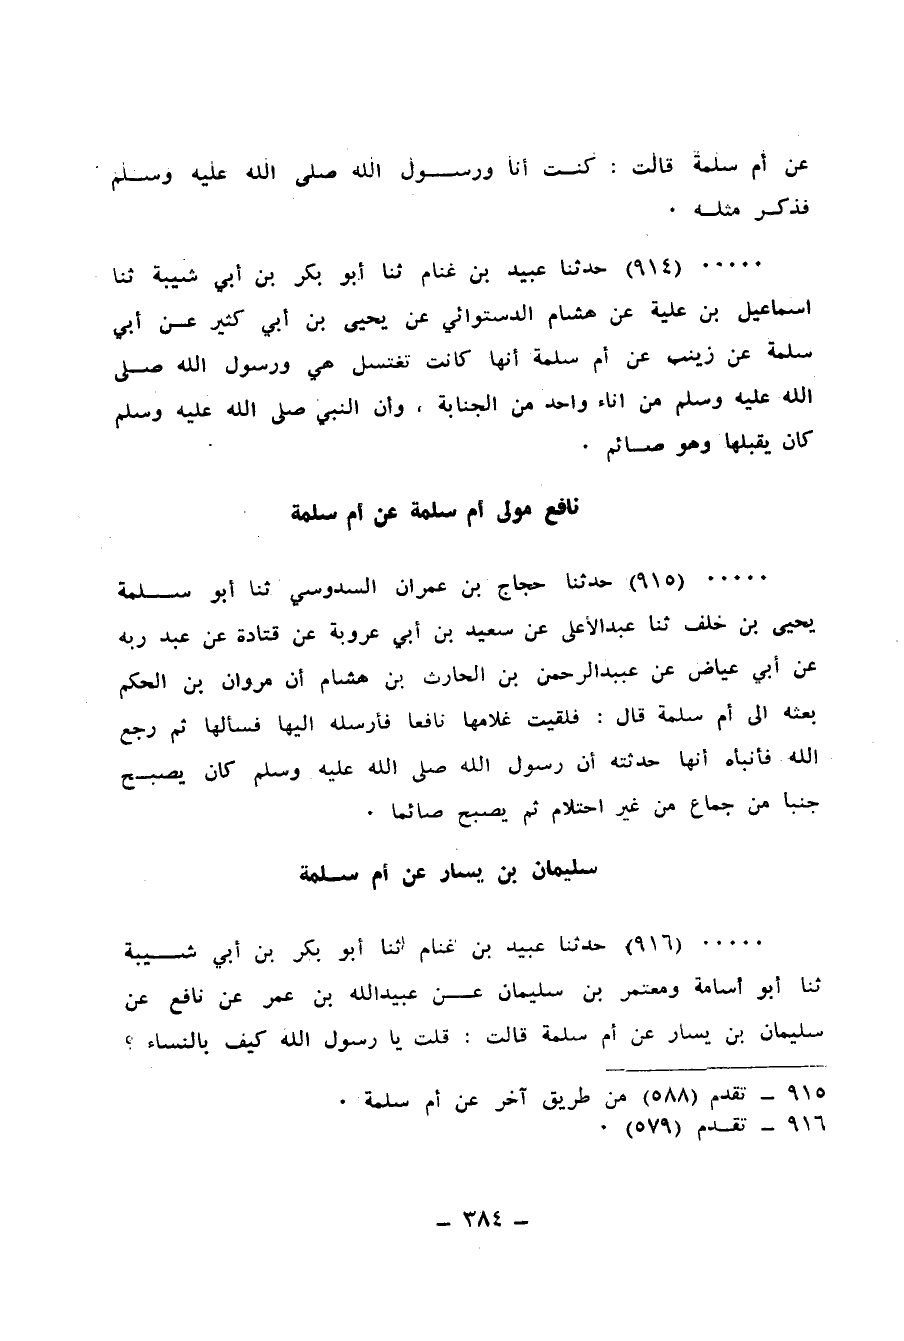 عن أم سلمة قالت : كنت أنا ورسول الله صلى الله عليه وسلم
فذكر مثله ٠
٠٠٠٠٠ (٩١٤) حدثنا عبيد بن غنام ثنا أبو بكر بن أبي شيبة ثنا
اسماعيل بن علية عن هشام الدستوائي عن يحيى بن أبي كثير عن أبي
سلمة عن زينب عن أم سلمة أنها كانت تغتسل هي ورسول الله صلى
الله عليه وسلم من اناء واحد من الجنابة ، وأن النبي صلى الله عليه وسلم
كان يقبلها وهو صائم ٠
نافع مولى أم سلمة عن أم سلمة
٠٠٠٠٠ (٩١٥) حدثنا حجاج بن عمران السدوسي ثنا أبو سلمة
يحيى بن خلف ثنا عبدالأعلى عن سعيد بن أبي عروبة عن قتادة عن عبد ربه
عن أبي عياض عن عبيدالرحمن بن الحارث بن هشام أن مروان بن الحكم
بعثه الى أم سلمة قال : فلقيت غلامها نافعا فأرسله اليها فسألها ثم رجع
الله فأنبأه أنها حدثته أن رسول الله صلى الله عليه وسلم كان يصبح
جنبا من جماع من غير احتلام ثم يصبح صائما ٠
سليمان بن يسار عن أم سلمة
٠٠٠٠٠ (٩١٦) حدثنا عبيد بن غنام ثنا أبو بكر بن أبي شيبة
ثنا أبو أسامة ومعتمر بن سليمان عن عبيدالله بن عمر عن نافع عن
سليمان بن يسار عن أم سلمة قالت : قلت يا رسول الله كيف بالنساء ؟
٩١٥ ـ تقدم (٥٨٨) من طريق آخر عن أم سلمة ٠
٩١٦ ـ تقدم (٥٧٩) ٠
ـ ٣٨٤ ـ